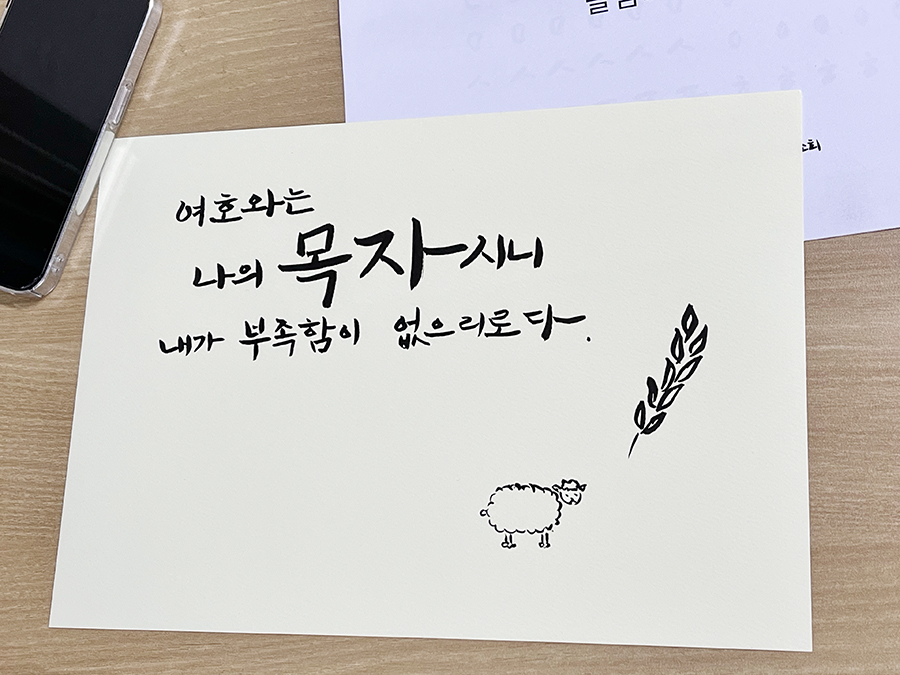 여호와는
나의 목자시니
내가 부족함이 없으리로다.